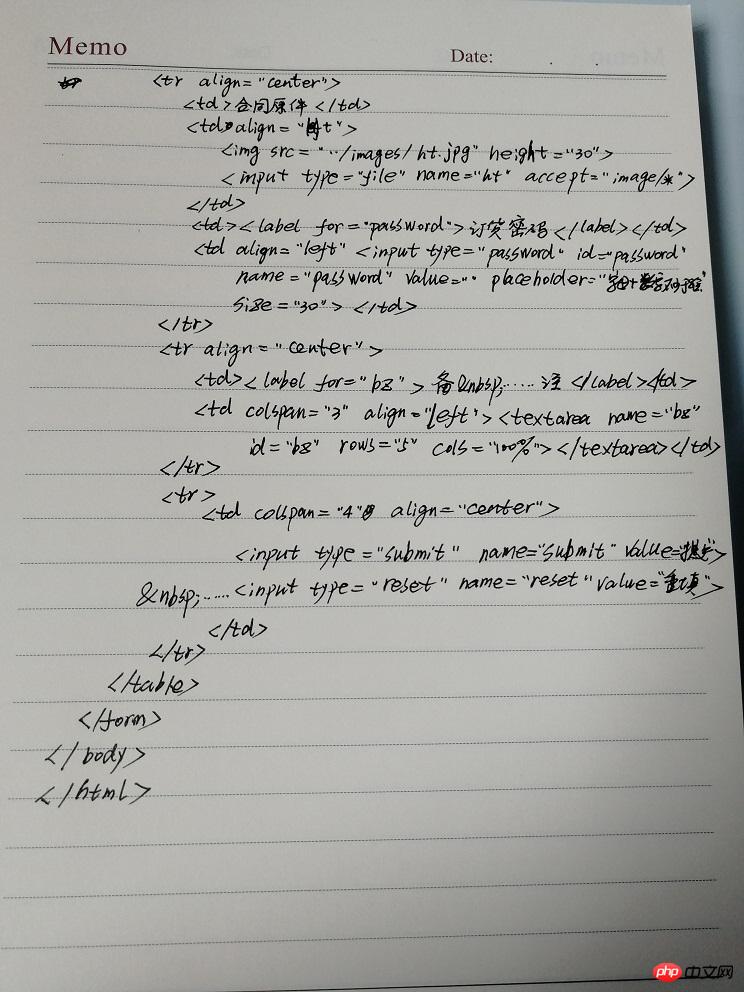 Memo
Date:
<tr align="center">
<td>合同原件</td>
<td align="t">
<img src="../images/ht.jpg" height="30">
<input type="file" name="ht" accept="image/*">
</td>
<td><label for="password">订货密码</label></td>
<td align="left" <input type="password" id="password"
name="password" value="" placeholder="
size="30"></td>
</tr>
<tr align="center">
<td><label for="bz">备&nbsp;......注</label></td>
<td colspan="3" align="left"><textarea name="bz"
id="bz" rows="5" cols="100%"></textarea></td>
</tr>
<tr>
<td colspan="4" align="center">
<input type="submit" name="submit" value="提交">
&nbsp;......<input type="reset" name="reset" value="重填">
</td>
</tr>
</table>
</form>
</body>
</html>
php中文网